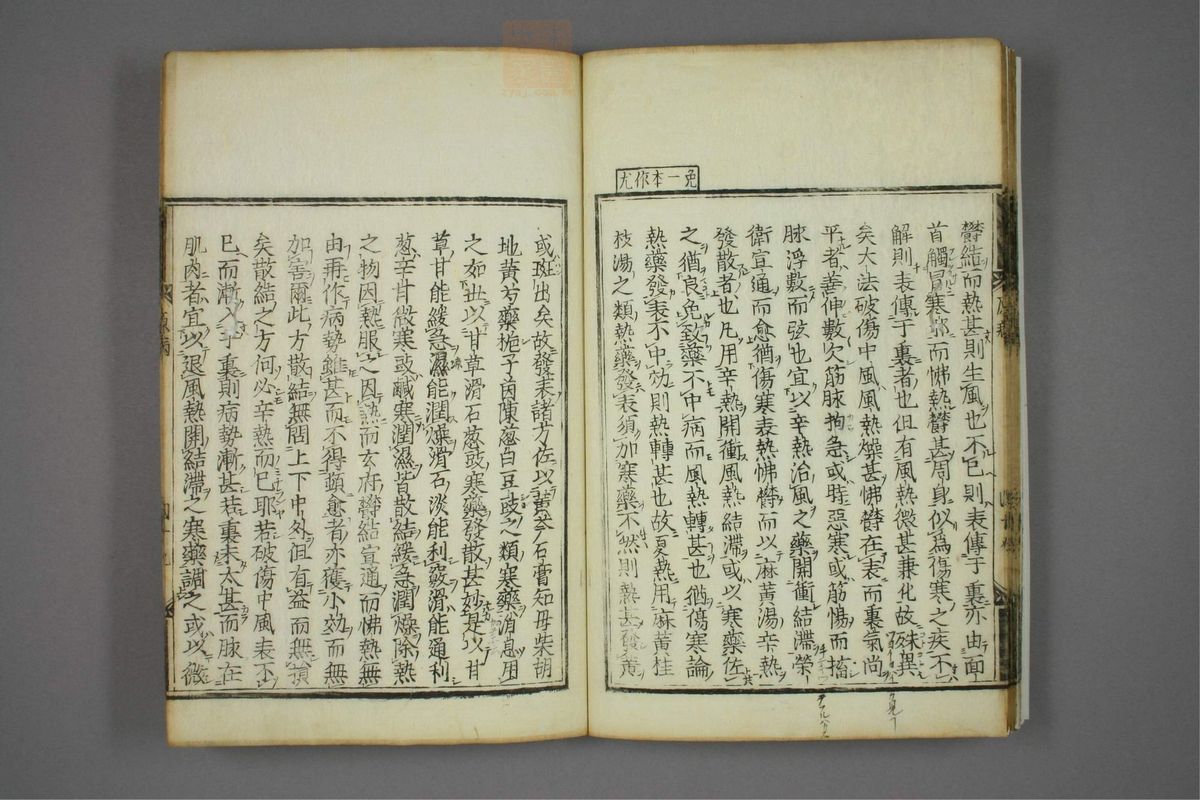 免一本作尤
欝結而熱甚則生風也不已則表傳于裏亦由面
首觸冒寒邪而怫熱欝甚周身似爲傷寒之疾不
解則表傳于裏者也但有風熱微甚兼化故殊異
矣大法破傷中風風熱燥甚怫欝在表而裏氣尚
平者善伸數欠筋脉拘急或時惡寒或筋惕而搐
脉浮數而弦也宜以辛熱治風之藥開衝結滯榮
衛宜通而愈猶傷寒表熱怫欝而以麻黃湯辛熱
發散者也凡用辛熱開衝風熱結滯或以寒藥佐
之猶良免致藥不中病而風熱轉甚也猶傷寒論
熱藥發表不中効則熱轉甚也故夏熱用麻黃桂
枝湯之類熱藥發表須加寒藥不然則熱甚發黃
或斑出矣故發表諸方佐以黃芩石膏知母柴胡
地黃芍藥梔子茵陳葱白豆豉之類寒藥消息用
之如世以甘草滑石葱豉寒藥發散甚妙是以甘
草甘能緩急濕能潤燥滑石淡能利竅滑能通利
葱辛甘微寒豉鹹寒潤濕皆散結緩急潤燥除熱
之物因熱服之因熱而玄府欝結宣通而怫熱無
由再作病勢雖甚而不得頓愈者亦獲小効而無
加害爾此方散結無問上下中外但有益而無損
矣散結之方何必辛熱而已耶若破傷中風表不
已而漸入于裏則病勢漸甚若裏未太甚而脉在
肌肉者宜以退風熱開結滯之寒藥調之或以微